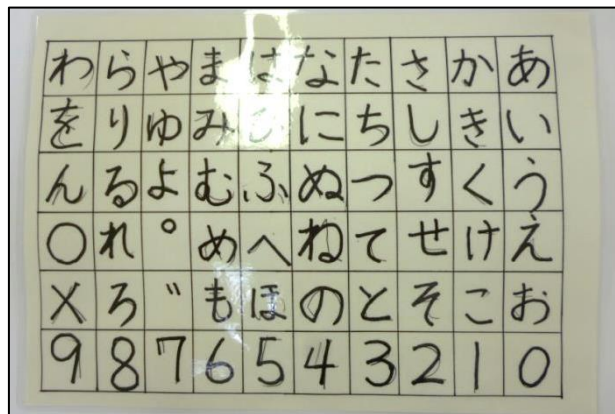 わ ら や ま は な た さ か あ
を り ゆ み ひ に ち し き い
ん る よ む ふ ぬ つ す く う
○ れ ゜ め へ ね て せ け え
× ろ ゛ も ほ の と そ こ お
9 8 7 6 5 4 3 2 1 0